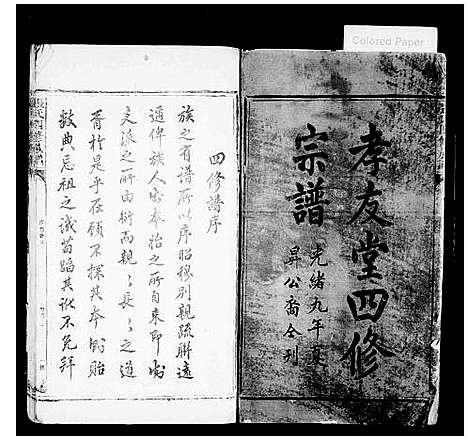 Colored Paper
孝友堂四修
宗譜
光緒九年夏
昇公裔仝刊
四修譜序
族之有譜所以序昭穆別親疏聯遠
邇俾族人知本治之所自來即知
支派之所由衍而親〻長〻之道
胥於是乎在顧不探其本則貽
數典忘祖之誠苟蹈其訛不免拜